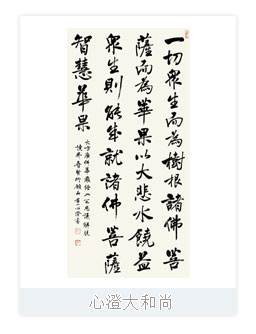 一切眾生而為樹根諸佛菩
薩而為華果以大悲水饒益
眾生則能成就諸佛菩薩
智慧華果
心澄大和尚